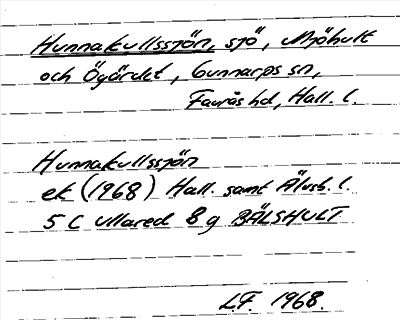 Hunnakullssjön, sjö, Mjöhult
och Ögärdet, Gunnarps sn,
Faurås hd, Hall. l.
Hunnakullssjön
ek (1968) Hall. samt Älvsb. l.
5 C Ullared 8 g BÄLSHULT
L.F. 1968.